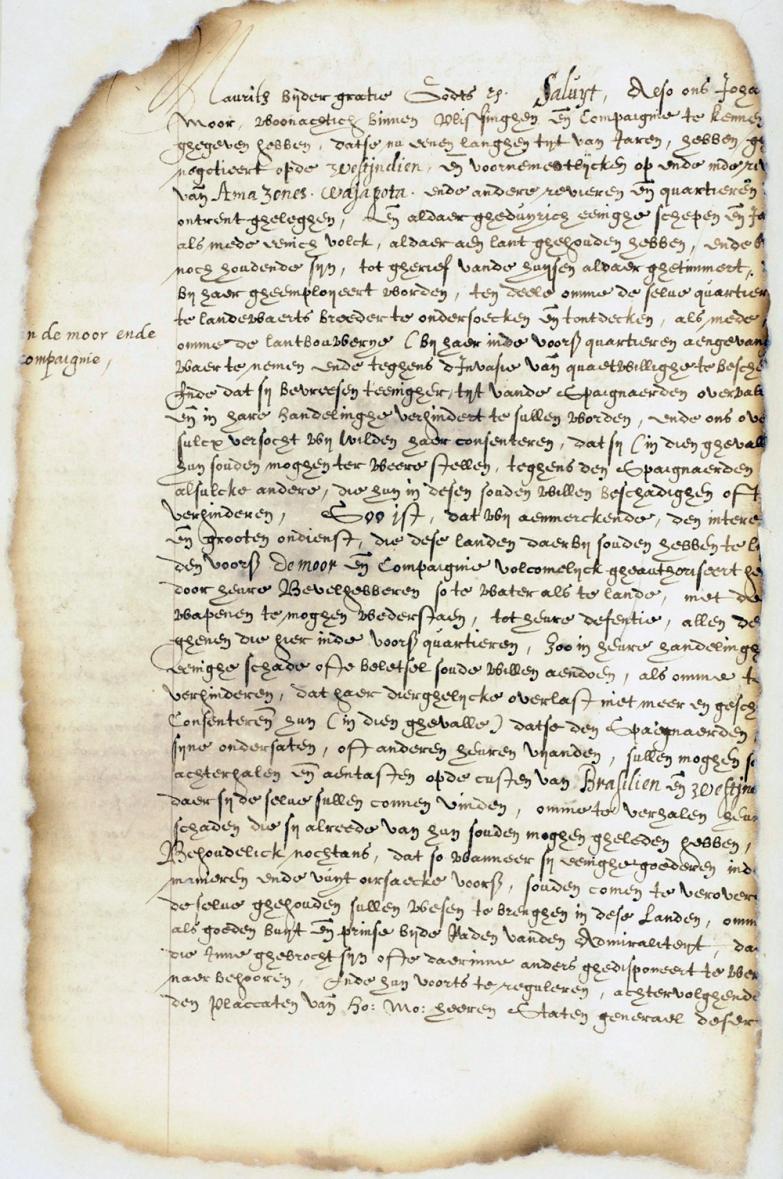 Maurits bijder gratie Godts etc. Saluyt, Also ons Joha
Moor, woonachtich binnen Vlissinghen en̄ Compaignie te kennen
ghegeven hebben, datse nu eenen langhen tyt van Jaren, hebben ge
negotieert opde westindien, en̄ voornementlycken op ende inde re
van Amazones. Wajapota. ende andere revieren en̄ quartieren
ontrent gheleghen, en̄ aldaer gheduyrich eenighe schepen en̄ Ja
als mede eenich volck, aldaer aen lant ghehouden hebben, ende
noch houdende syn, tot gherief vande huysen aldaer ghetimmert,
by haer gheemployeert worden, ten deele omme de selve quartier
te landewaerts breeder te ondersoecken en̄ tontdecken, als mede
n de moor ende
ompaignie,
omme de lantbouwerye (by haer inde voorsz quartieren aengevang
waer te nemen ende teghens d'Invasie van quaetwillighe te besche
Ende dat sy bevreesen teenigher tyt vande Spaignaerden overval
en̄ in hare handelinghe verhindert te sullen worden, ende ons ove
sulcx versocht wy wilden haer consenteren, dat sy (in dien gheval
hun souden moghen ter weere stellen, teghens den Spaignaerden
alsulcke andere, die hun in desen souden willen beschadighen oft
verhinderen, Soo ist, dat wy aenmerckende, den intere
en̄ grooten ondienst, die dese landen daerby souden hebben te l
den voorsz de moor en̄ Compaignie volcomelyck gheauthoriseert he
door heure Bevelhebberen so te water als te lande, met de
wapenen te moghen wederstaen, tot heure defentie, allen de
ghenen die hier inde voorsz quartieren, zoo in heure handelingh
eenighe schade ofte beletsel soude willen aendoen, als omme t
verhinderen, dat haer dierghelycke overlast niet meer en gesch
Consenteren hun (in dien ghevalle) datse den Spaignaerden
syne ondersaten, oft anderen heuren vyanden, sullen moghen
achterhalen en̄ aentasten opde custen van Brasilien en̄ westin
daer sy de selve sullen connen vinden, omme te verhalen heur
schaden die sy alreede van hun souden moghen gheleden hebben,
Behoudelick nochtans, dat so wanneer sy eenighe goederen ind
manieren ende vuyt oirsaecke voorsz, souden comen te verover
de selve ghehouden sullen wesen te brenghen in dese Landen, omm
als goeden buyt en̄ prinse byde Raden vanden Admiraliteyt, da
die Inne ghebrocht syn ofte daerinne anders ghedisponeert te wer
naer behooren, Ende hun voorts te reguleren, achtervolghende
den Placcaten van Ho: Mo: heeren Staten generael deser